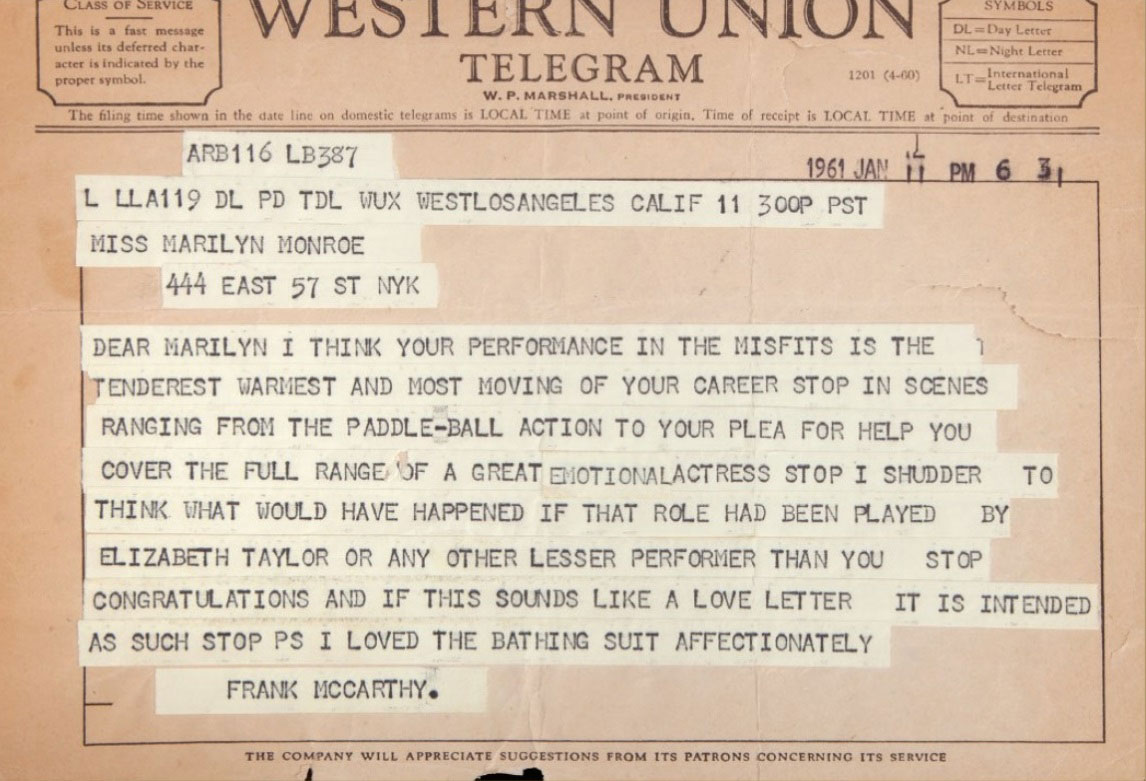 CLASS OF SERVICE
This is a fast message
unless its deferred char-
acter is indicated by the
proper symbol.
WESTERN UNION
TELEGRAM
W. P. MARSHALL, PRESIDENT
1201 (4-60)
SYMBOLS
DL=Day Letter
NL=Night Letter
LT=International Letter Telegram
The filing time shown in the date line on domestic telegrams is LOCAL TIME at point of origin. Time of receipt is LOCAL TIME at point of destination
ARB116 LB387
1961 JAN 11 PM 6 31
L LLA119 DL PD TDL WUX WESTLOSANGELES CALIF 11 300P PST
MISS MARILYN MONROE
444 EAST 57 ST NYK
DEAR MARILYN I THINK YOUR PERFORMANCE IN THE MISFITS IS THE
TENDEREST WARMEST AND MOST MOVING OF YOUR CAREER STOP IN SCENES
RANGING FROM THE PADDLE-BALL ACTION TO YOUR PLEA FOR HELP YOU
COVER THE FULL RANGE OF A GREAT EMOTIONAL ACTRESS STOP I SHUDDER TO
THINK WHAT WOULD HAVE HAPPENED IF THAT ROLE HAD BEEN PLAYED BY
ELIZABETH TAYLOR OR ANY OTHER LESSER PERFORMER THAN YOU STOP
CONGRATULATIONS AND IF THIS SOUNDS LIKE A LOVE LETTER IT IS INTENDED
AS SUCH STOP PS I LOVED THE BATHING SUIT AFFECTIONATELY
FRANK MCCARTHY.
THE COMPANY WILL APPRECIATE SUGGESTIONS FROM ITS PATRONS CONCERNING ITS SERVICE